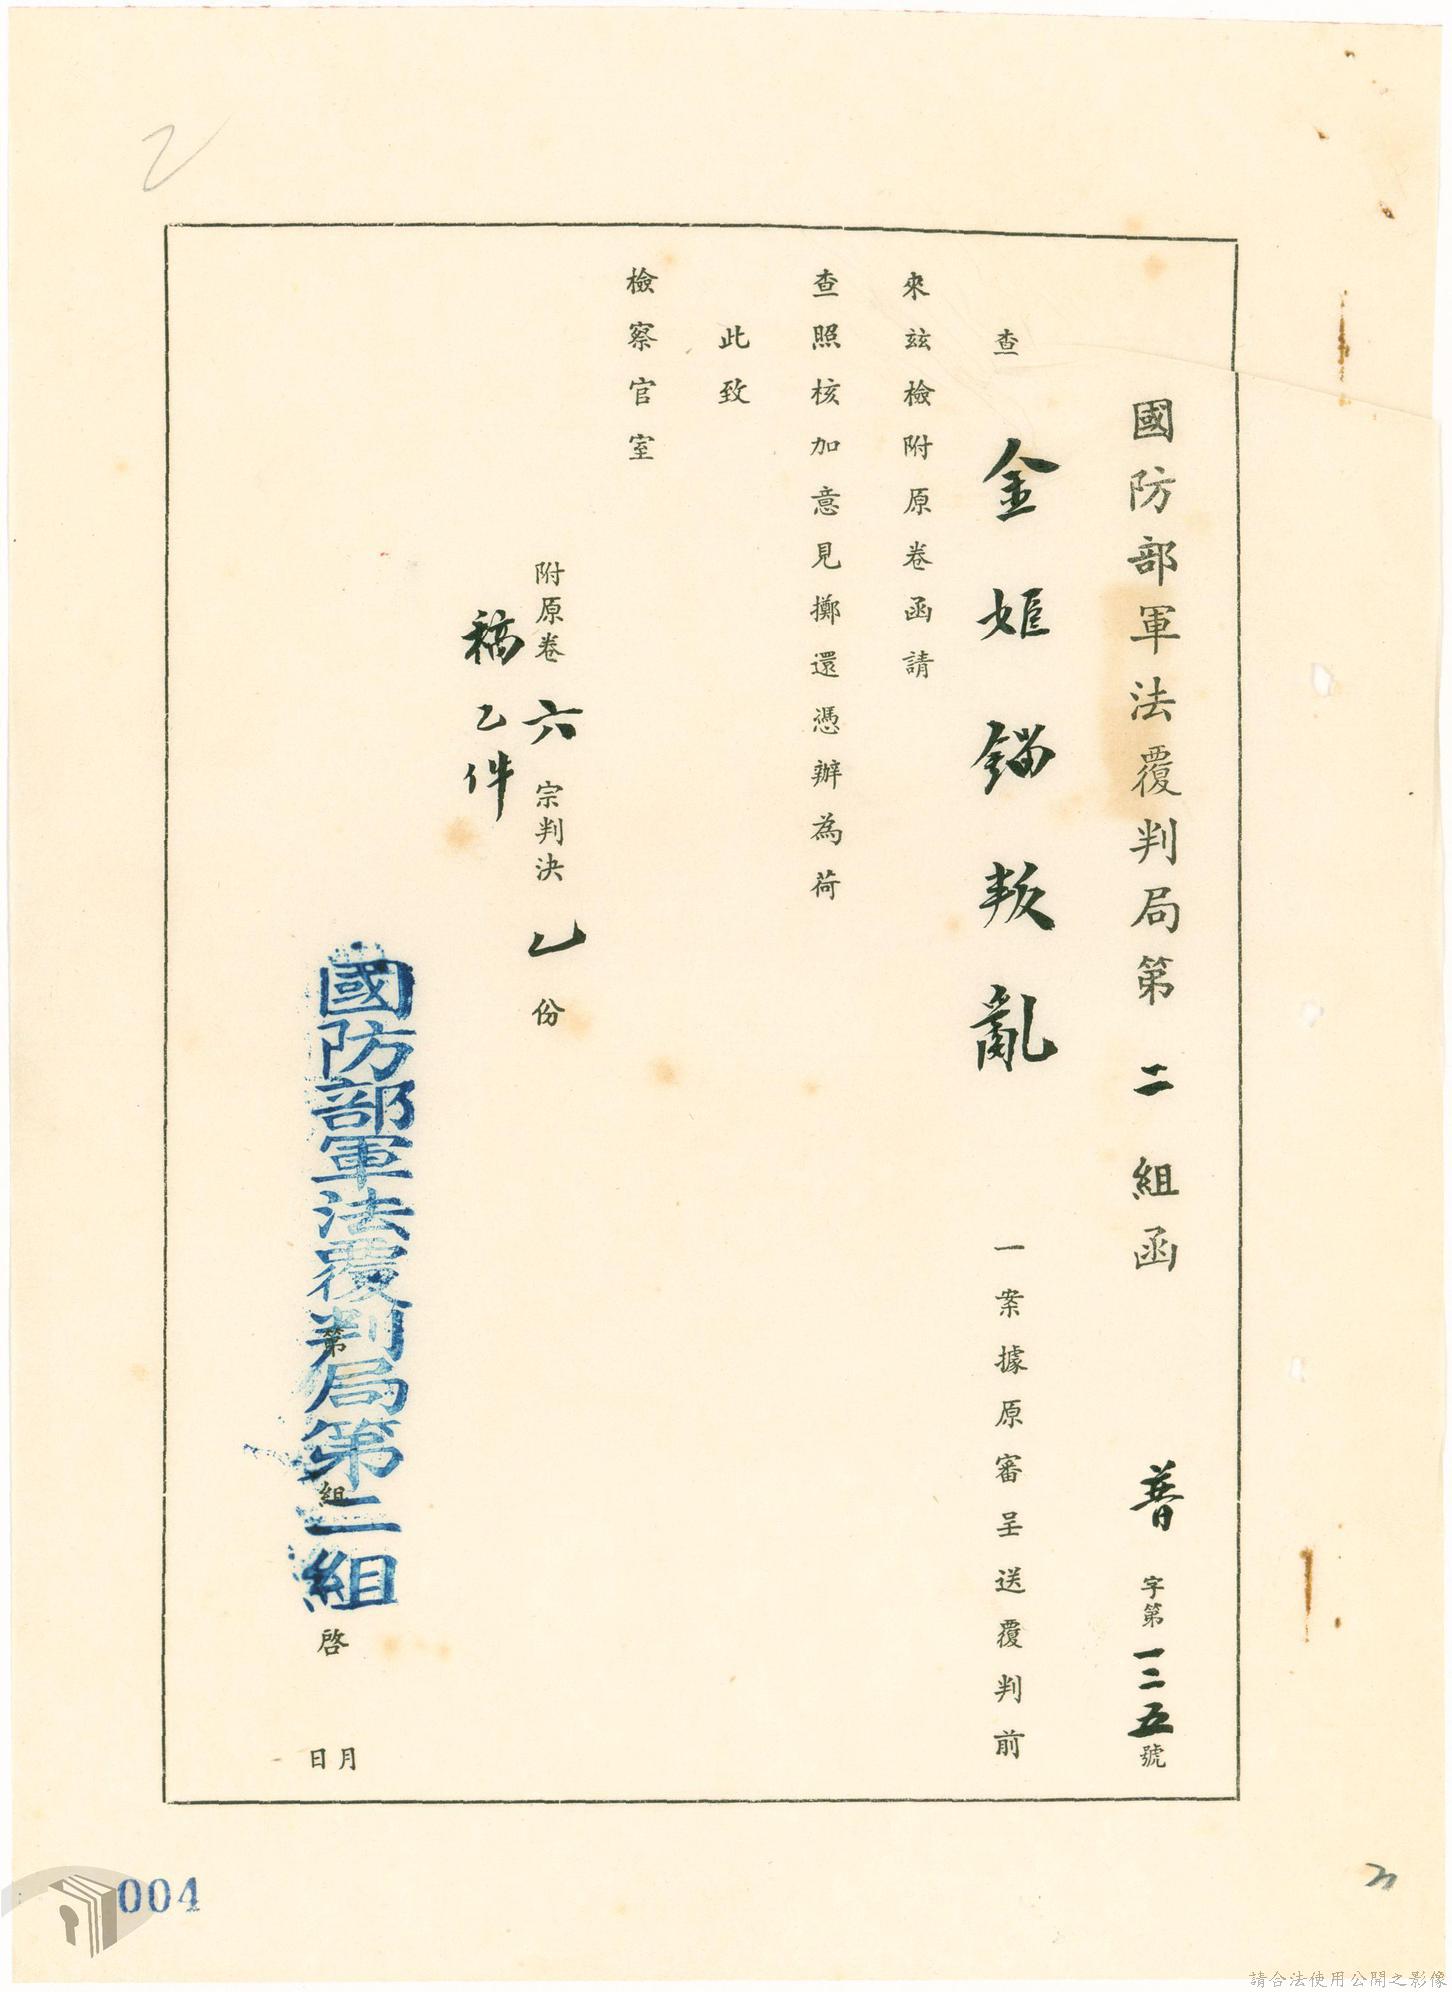 國防部軍法覆判局第二組函 普字第一二五號
查金姬鎦叛亂一案據原審呈送覆判前
來茲檢附原卷函請
查照核加意見擲還憑辦為荷
此致
檢察官室
附原卷六宗判決乙份
稿乙件
國防部軍法覆判局第二組
第 組 啓
月 日
004
請合法使用公開之影像